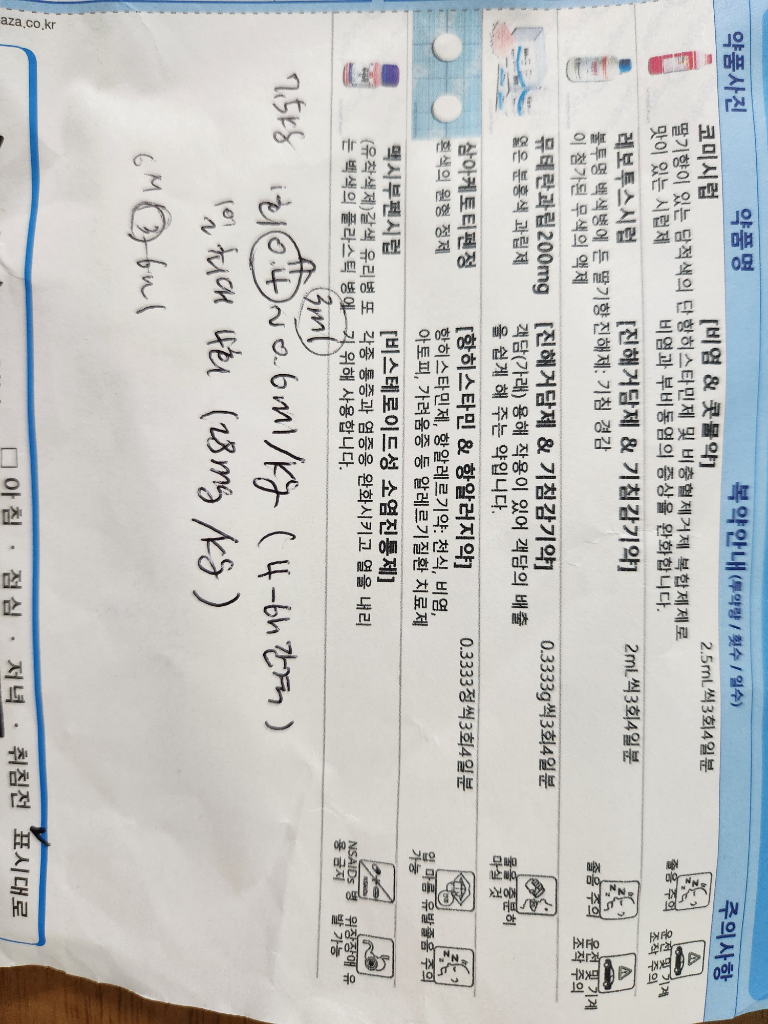 aza.co.kr
약품사진 약품명 복약안내 (투약량 / 횟수 / 일수) 주의사항
코미시럽 [비염 & 콧물약]
딸기향이 있는 담적색의 단 항히스타민제 및 비충혈제거제 복합제제로
맛이 있는 시럽제 비염과 부비동염의 증상을 완화합니다.
2.5mL씩3회4일분
졸음 주의
운전 및 기계 조작 주의
레보투스시럽 [진해거담제 & 기침감기약]
불투명 백색병에 든 딸기향 진해제: 기침 경감
이 첨가된 무색의 액제
2mL씩3회4일분
졸음 주의
운전 및 기계 조작 주의
뮤테란과립200mg [진해거담제 & 기침감기약]
엷은 분홍색 과립제 객담(가래) 용해 작용이 있어 객담의 배출
을 쉽게 해 주는 약입니다.
0.3333g씩3회4일분
물을 충분히 마실 것
삼아케토티펜정 [항히스타민 & 항알러지약]
흰색의 원형 정제 항히스타민제, 항알레르기약: 천식, 비염,
아토피, 가려움증 등 알레르기질환 치료제
0.3333정씩3회4일분
입 마름 유발 가능
졸음 주의
맥시부펜시럽 [비스테로이드성 소염진통제]
(유착색제)갈색 유리병 또 각종 통증과 염증을 완화시키고 열을 내리
는 백색의 플라스틱 병에 기 위해 사용합니다.
NSAIDs 병용 금지
위장장애 유발 가능
3ml
1회 0.4 ~ 0.6ml/kg (4-6h간격)
1일 최대 4회 (28mg/kg)
6ml
□ 아침 · 점심 · 저녁 · 취침전 표시대로